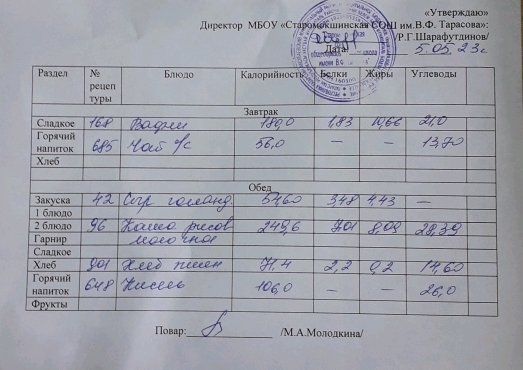 «Утверждаю»
Директор МБОУ «Старомокшинская СОШ им.В.Ф. Тарасова»:
/Р.Г.Шарафутдинов/
Дата 5.05.23г
Раздел № рецептуры Блюдо Калорийность Белки Жиры Углеводы
Завтрак
Сладкое 168 Вафли 180,0 1,83 10,66 21,0
Горячий напиток 685 Чай с/с 56,0 – – 13,70
Хлеб
Обед
Закуска 42 Сыр голланд. 54,60 3,48 4,43 –
1 блюдо
2 блюдо 96 Каша рисов молочная 249,6 7,01 8,09 28,39
Гарнир
Сладкое
Хлеб 901 Хлеб пшен 71,4 2,2 0,2 14,60
Горячий напиток 648 Кисель 106,0 – – 26,0
Фрукты
Повар: /М.А.Молодкина/